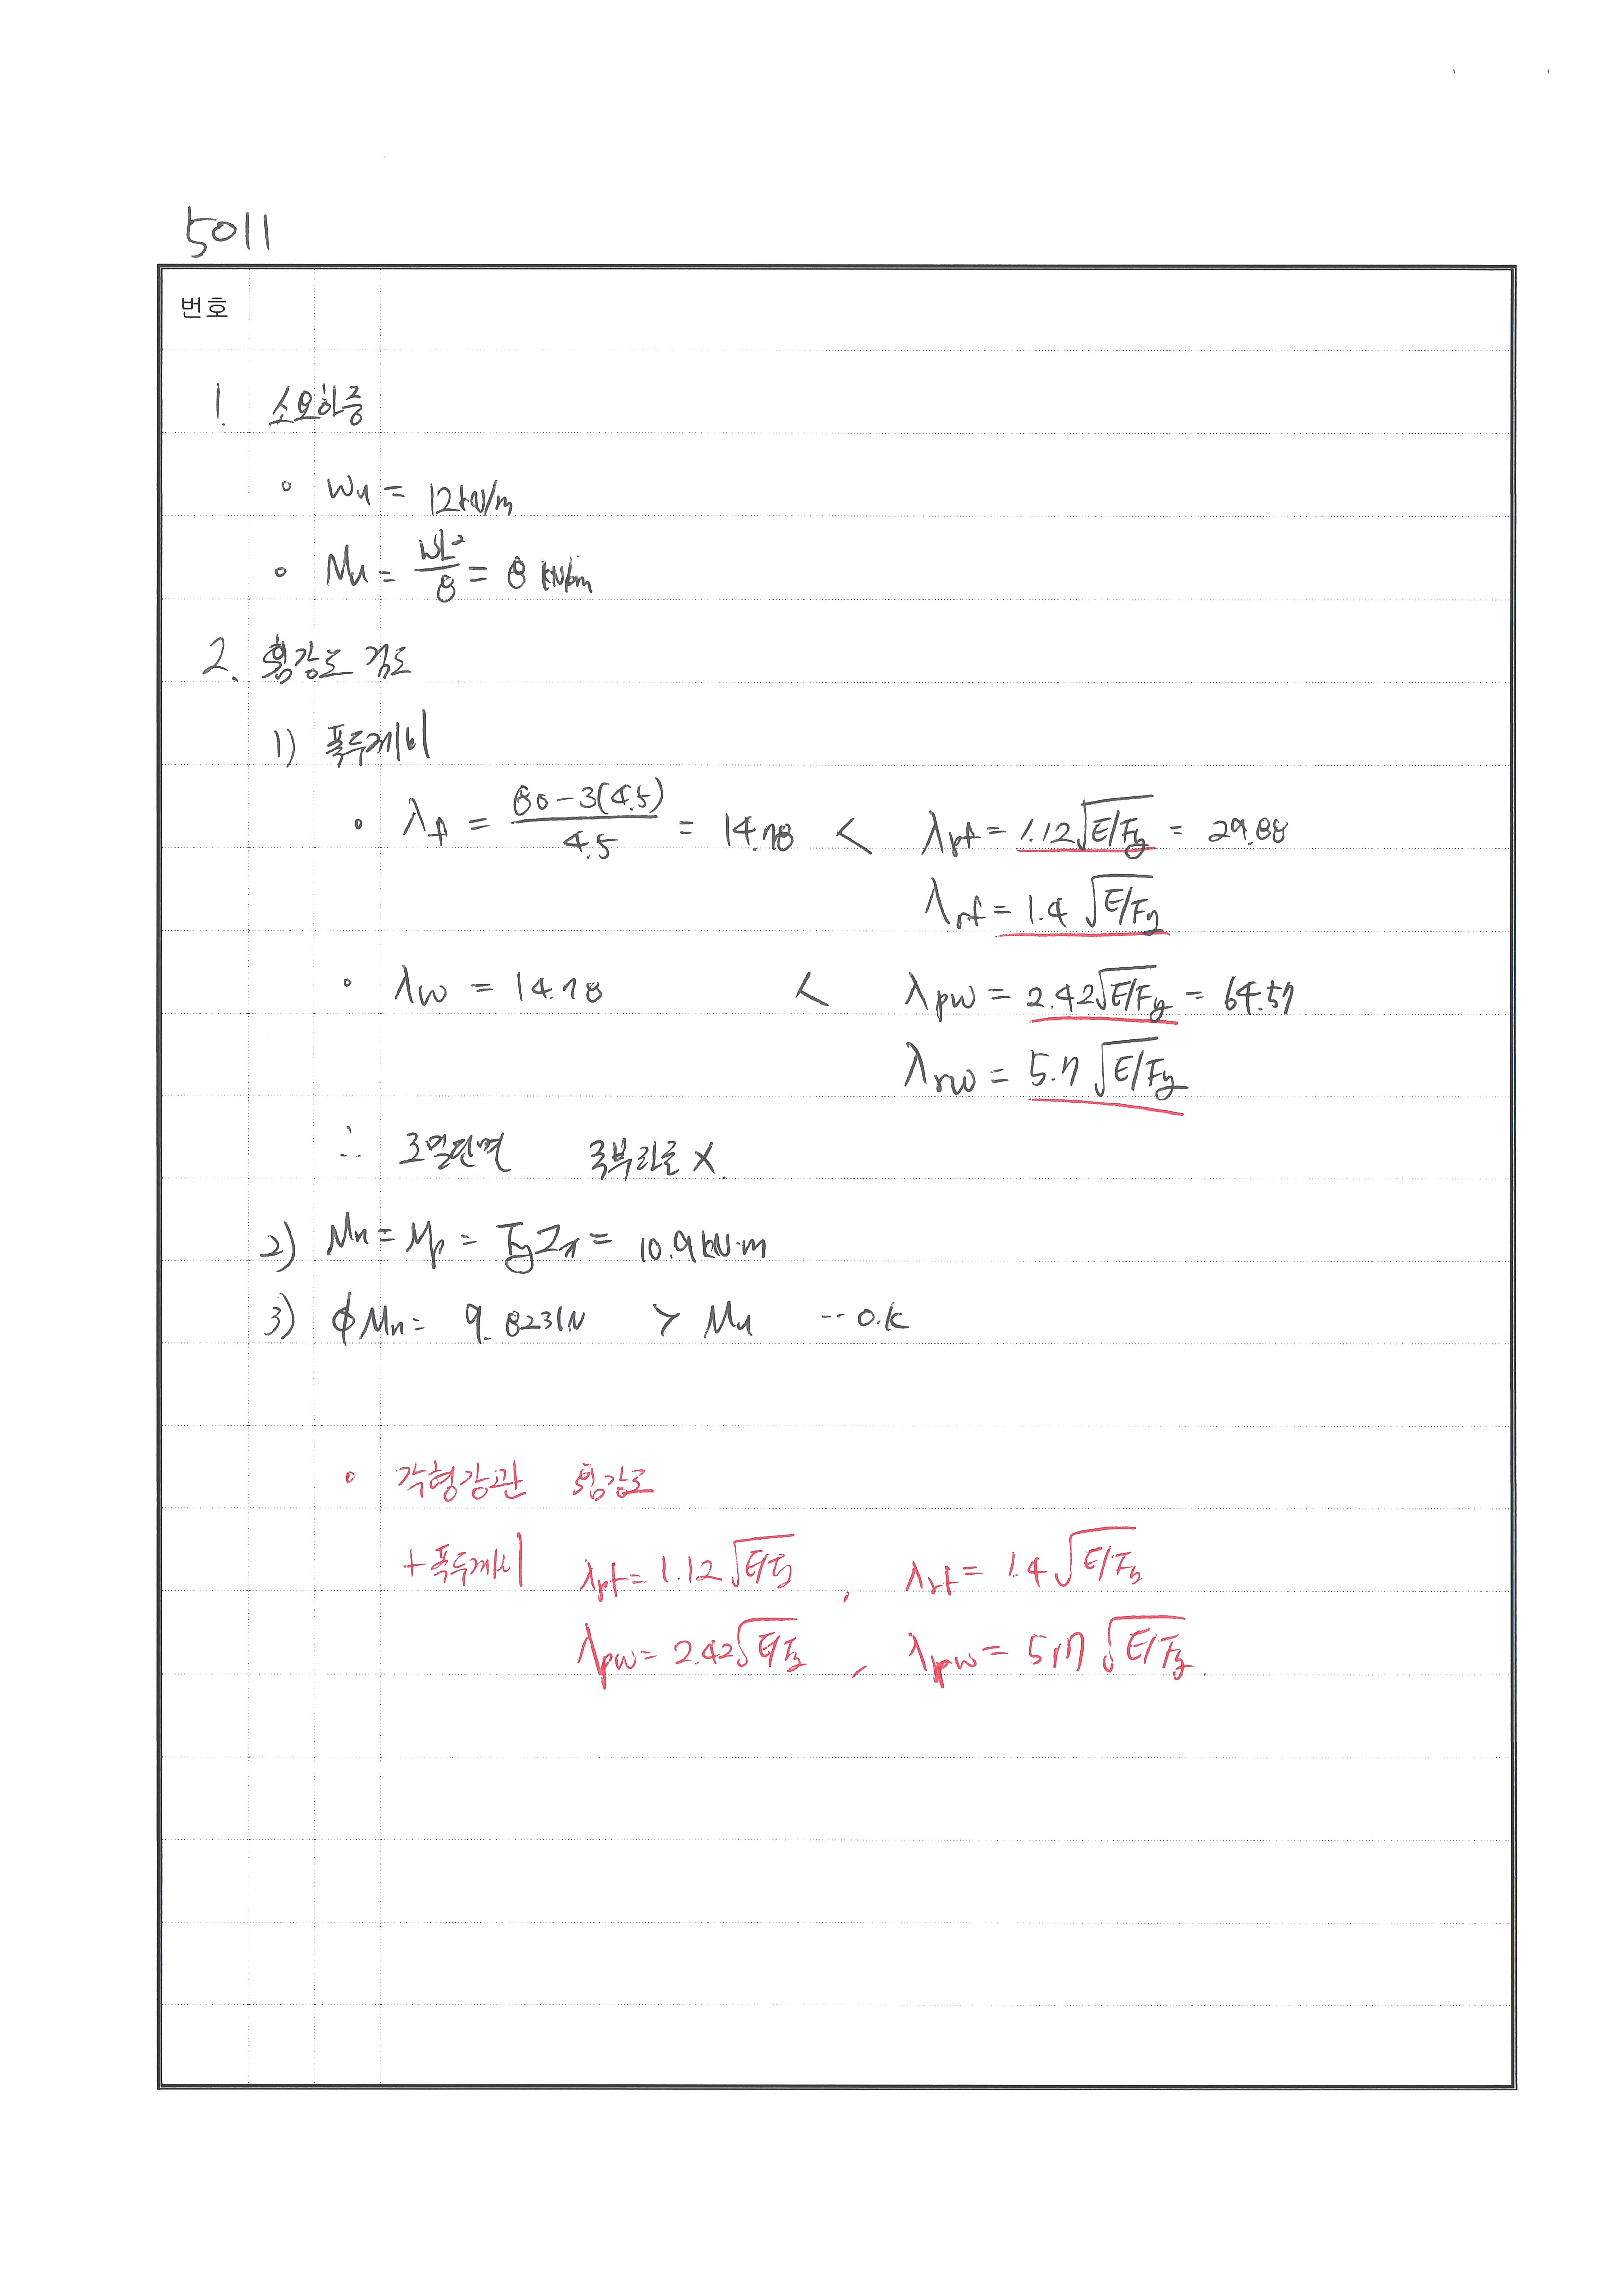 5011
번호
1. 소요하중
∘ Wu = 12kN/m
∘ Mu = WL²/8 = 8 kN/m
2. 휨강도 검토
1) 폭두께비
• λf = (80-3(4.5))/4.5 = 14.78 < λpf = 1.12√(E/Fy) = 29.88
λrf = 1.4 √(E/Fy)
• λw = 14.78 < λpw = 2.42√(E/Fy) = 64.57
λrw = 5.7 √(E/Fy)
∴ 조밀단면 국부좌굴 X.
2) Mn = Mp = FyZx = 10.9 kN·m
3) φMn = 9.823kN > Mu -- O.K
∘ 각형강관 휨강도
+폭두께비 λpf = 1.12√(E/Fy) , λrf = 1.4√(E/Fy)
λpw = 2.42√(E/Fy) , λpw = 5.7√(E/Fy)